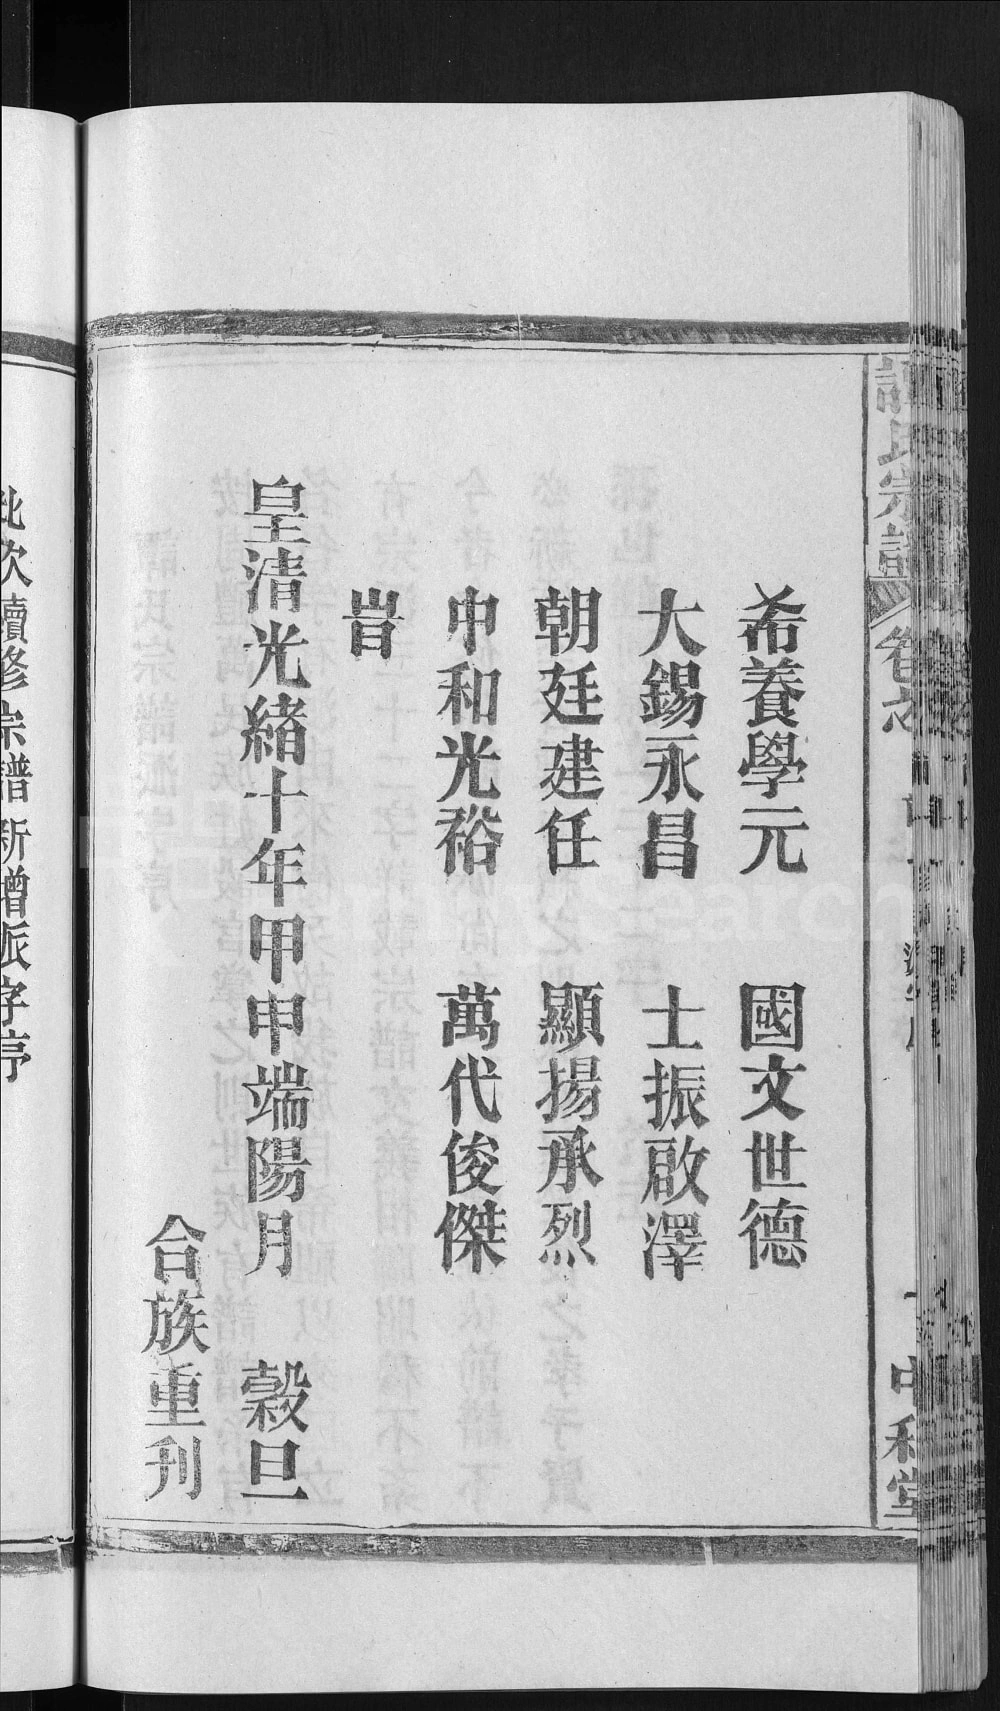 譚氏宗譜 卷之
中和堂
希養學元 國文世德
大錫永昌 士振啟澤
朝廷建任 顯揚承烈
中和光裕 萬代俊傑
旹
皇清光緒十年甲申端陽月 穀旦
合族重刊
此次續修宗譜新增派字序